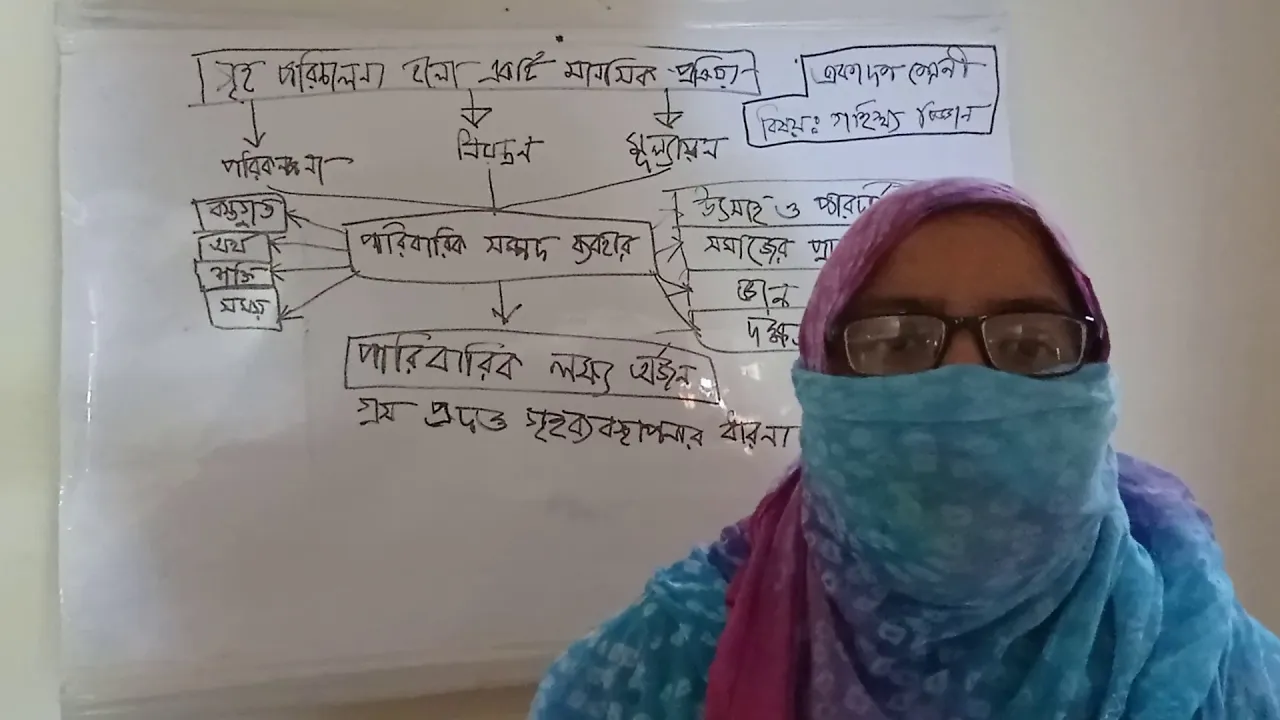 গৃহ পরিচালনা হলো একটি মানসিক প্রক্রিয়া
একাদশ শ্রেনী
বিষয়ঃ গার্হস্থ্য বিজ্ঞান
পরিকল্পনা
নিয়ন্ত্রন
মূল্যায়ন
বস্তুগত
অর্থ
শক্তি
সময়
পারিবারিক সম্পদ ব্যবহার
উৎসাহ ও
সমাজের
জ্ঞান
পারিবারিক লক্ষ্য অর্জন
গ্রস প্রদত্ত গৃহব্যবস্থাপনার ধারনা